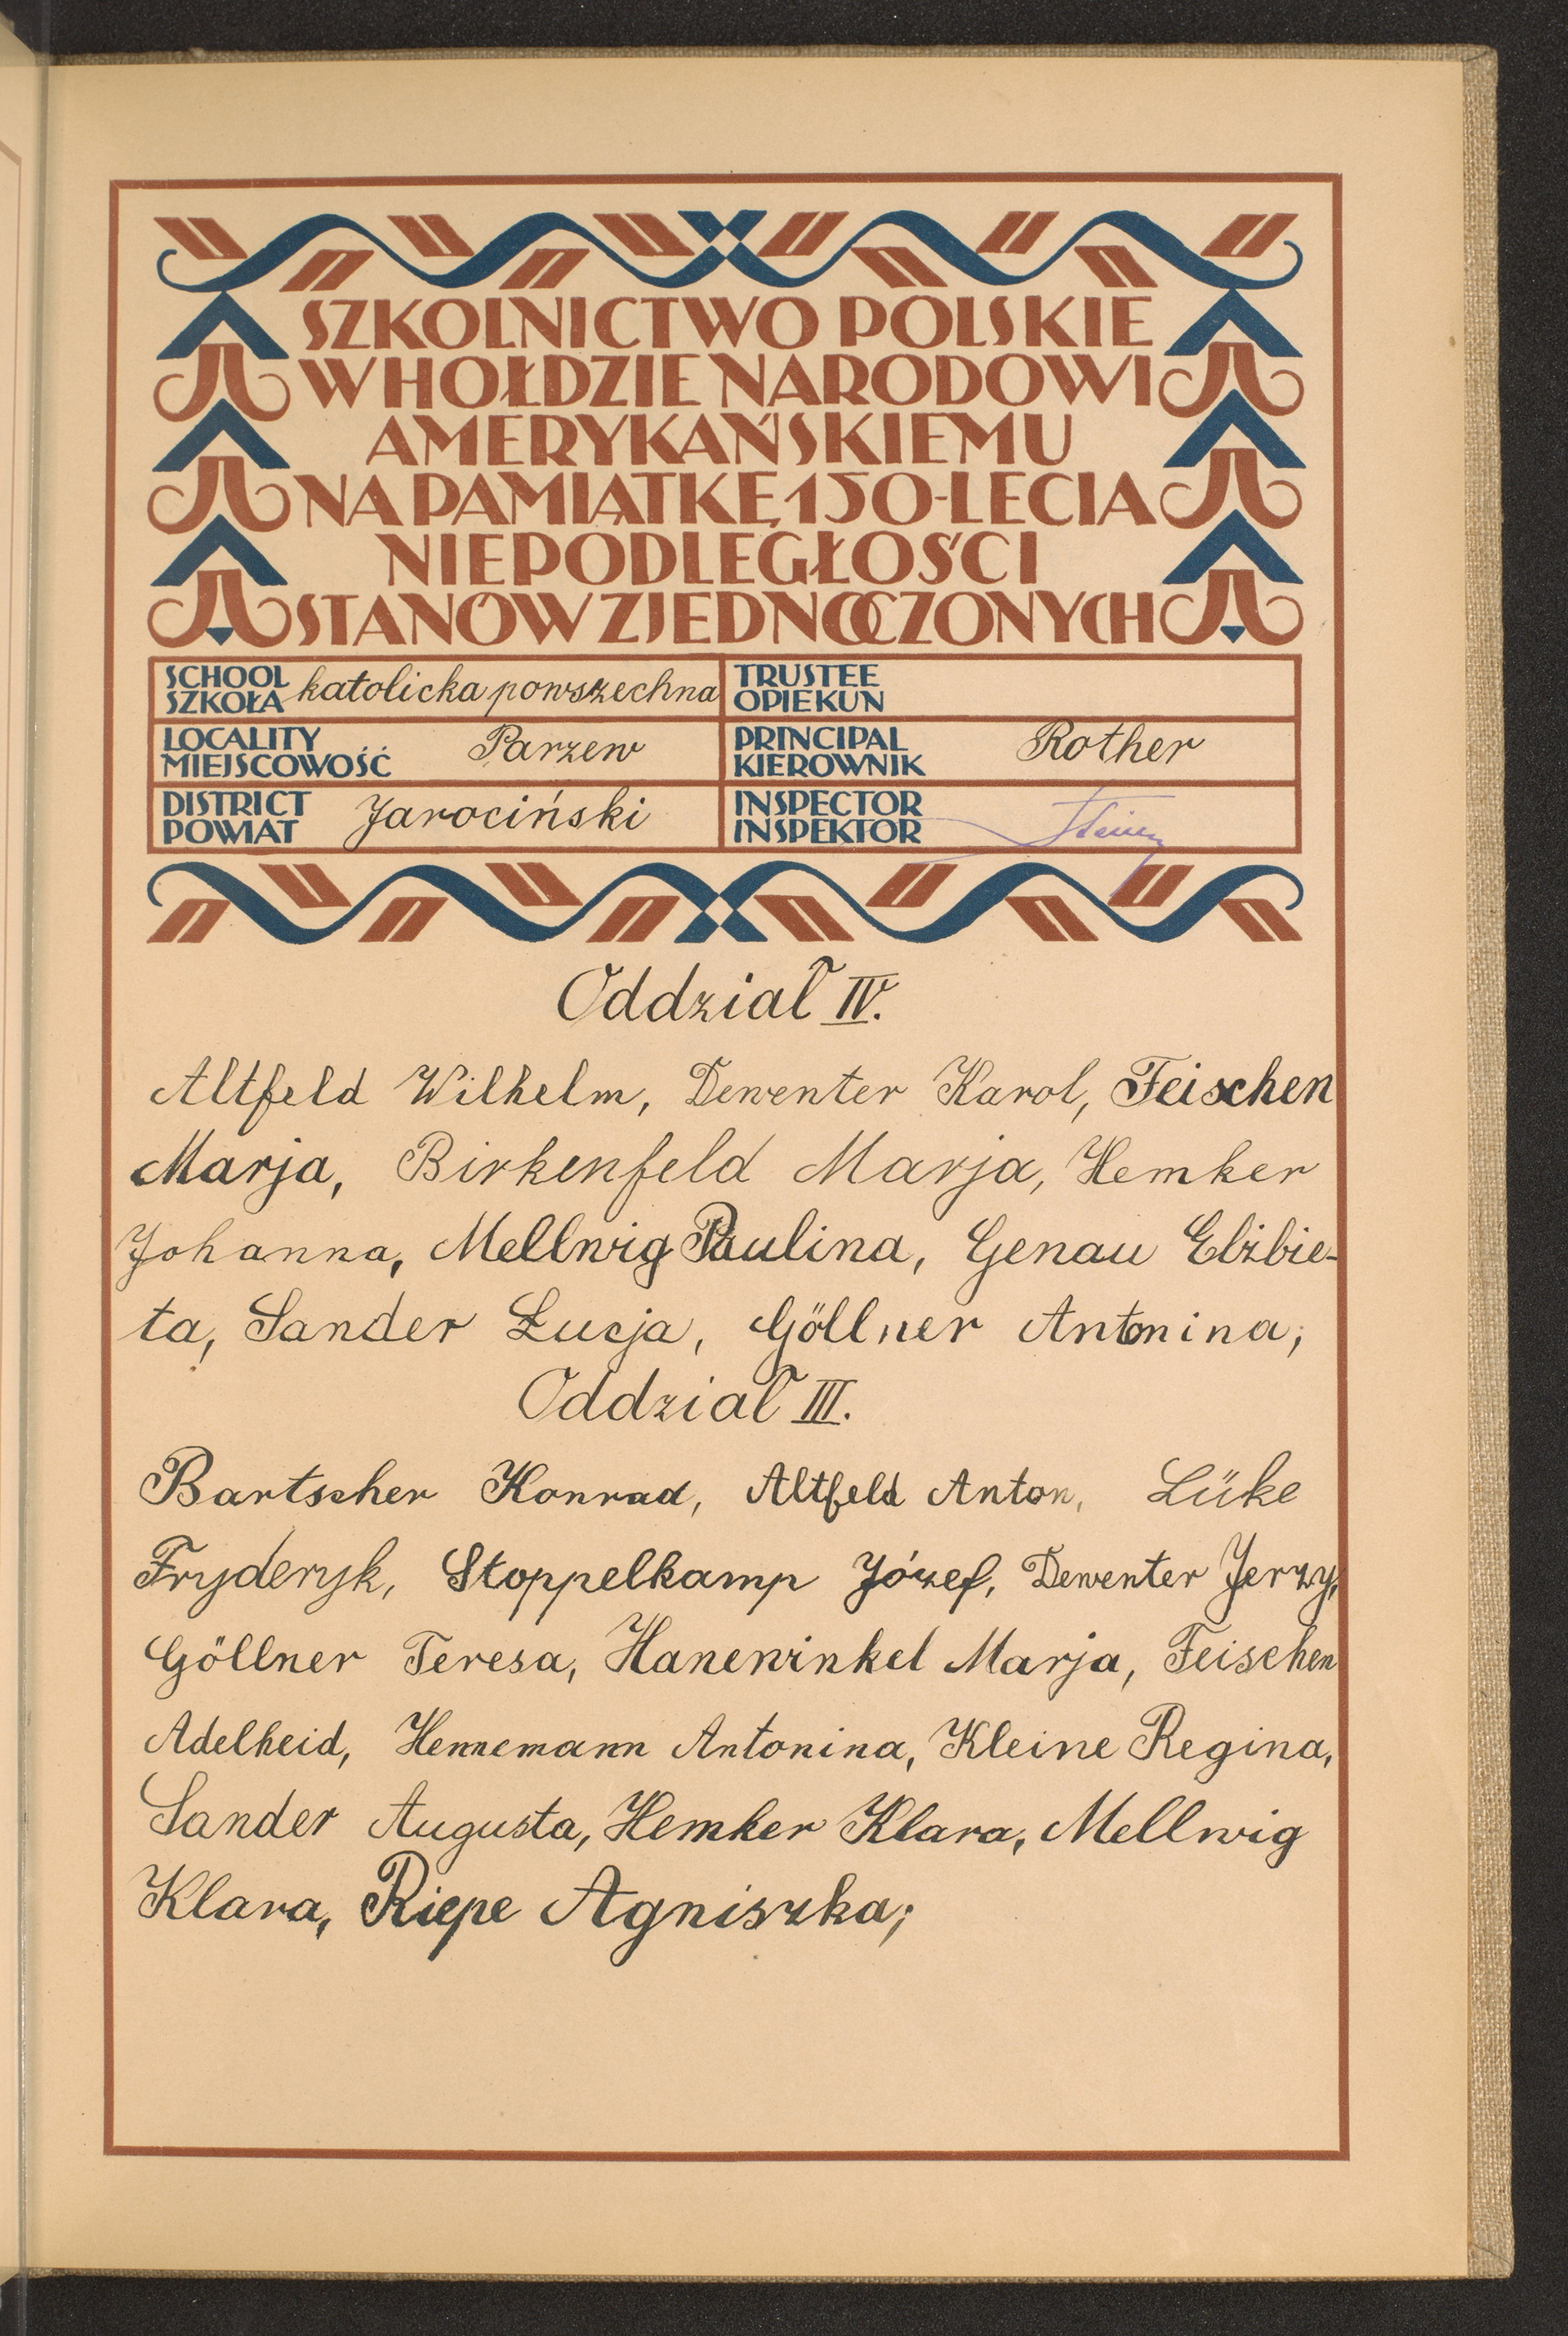 SZKOLNICTWO POLSKIE
W HOŁDZIE NARODOWI
AMERYKAŃSKIEMU
NA PAMIĄTKĘ 150-LECIA
NIEPODLEGŁOŚCI
STANÓW ZJEDNOCZONYCH
SCHOOL
SZKOŁA katolicka powszechna
TRUSTEE
OPIEKUN
LOCALITY
MIEJSCOWOŚĆ Parzew
PRINCIPAL
KIEROWNIK Rother
DISTRICT
POWIAT Jarociński
INSPECTOR
INSPEKTOR
Oddział IV.
Altfeld Wilhelm, Dewenter Karol, Feischen
Marja, Birkenfeld Marja, Hemker
Johanna, Mellwig Paulina, Genau Elżbie-
ta, Sander Łucja, Göllner Antonina;
Oddział III.
Bartscher Konrad, Altfeld Anton, Lüke
Fryderyk, Stoppelkamp Józef, Dewenter Jerzy,
Göllner Teresa, Hanewinkel Marja, Feischen
Adelheid, Hennemann Antonina, Kleine Regina,
Sander Augusta, Hemker Klara, Mellwig
Klara, Riepe Agniszka;